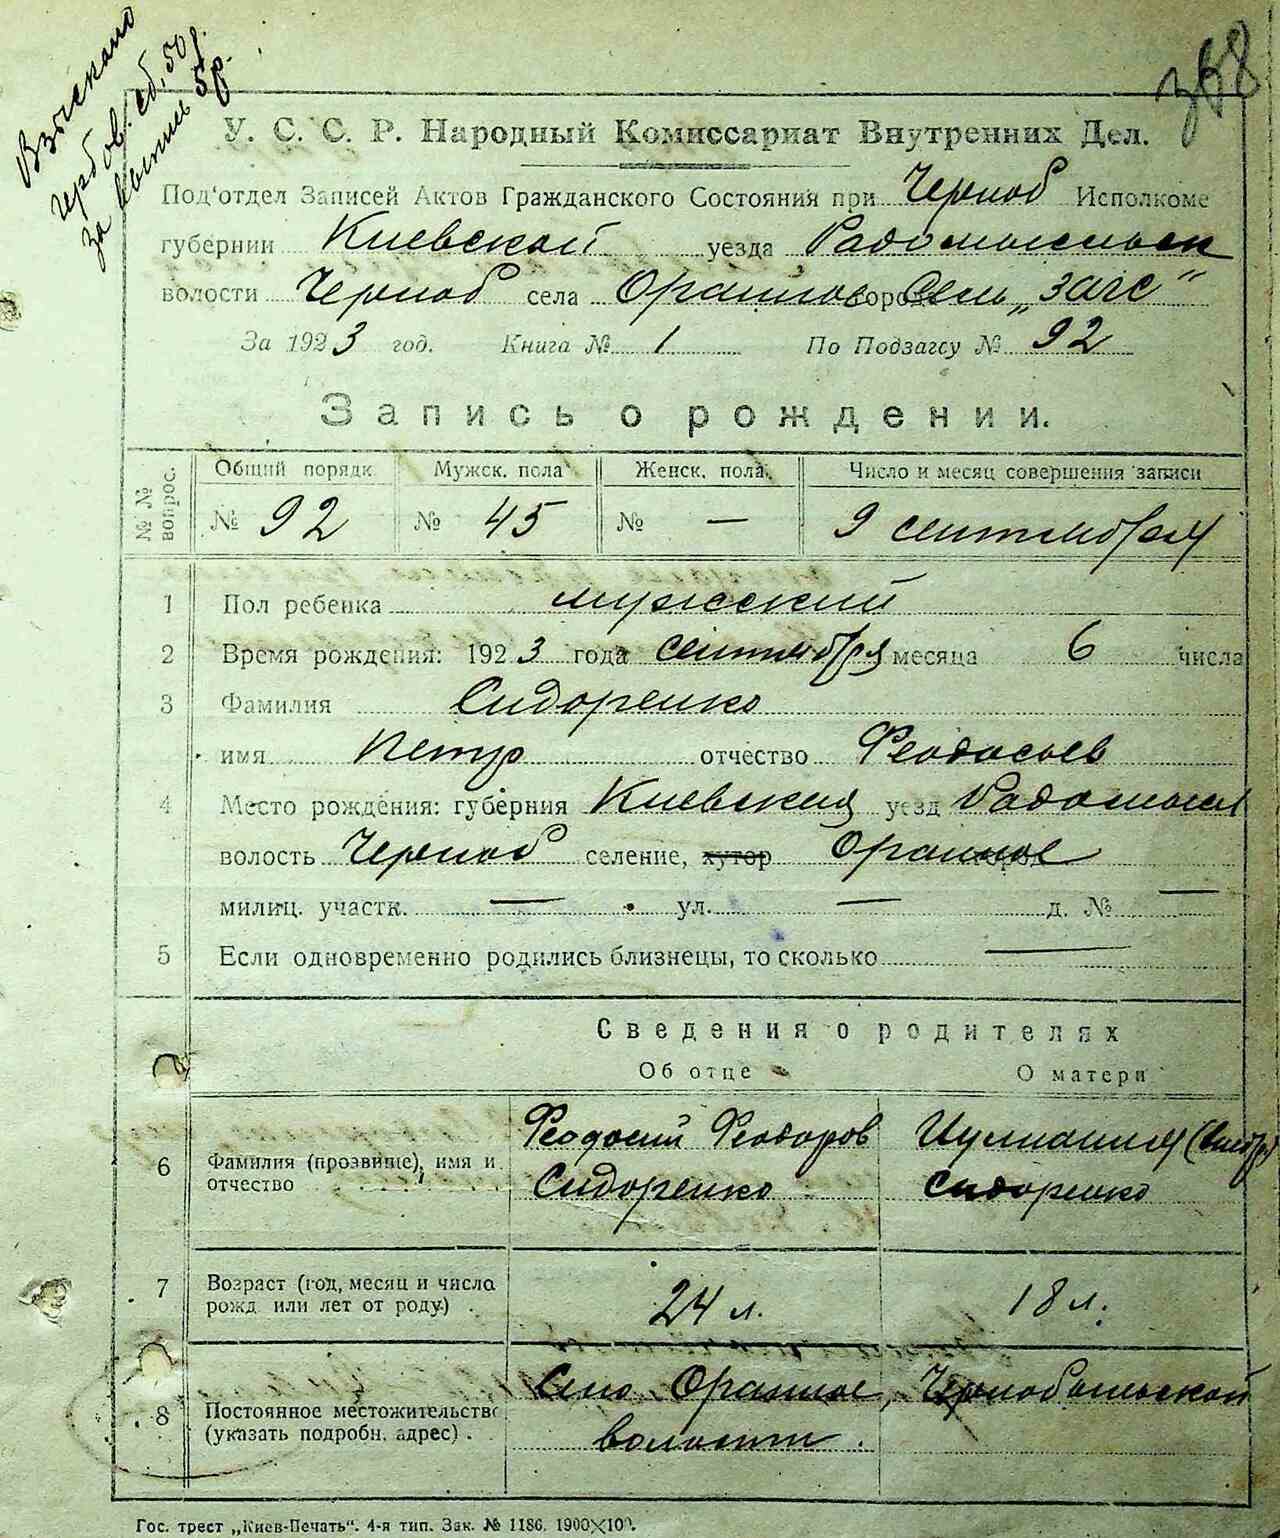 Взыскано
герб. сб. 50 р.
за запись 5 р.
368
У. С. С. Р. Народный Комиссариат Внутренних Дел.
Под'отдел Записей Актов Гражданского Состояния при Черноб Исполкоме
губернии Киевской уезда Радомысльск
волости Черноб села Оранное города Сель „загс“
За 1923 год. Книга № 1 По Подзагсу № 92
Запись о рождении.
№ № вопрос. Общий порядк. Мужск. пола Женск. пола. Число и месяц совершения записи
№ 92 № 45 № — 9 сентября
1 Пол ребенка мужеский
2 Время рождения: 1923 года сентября месяца 6 числа
3 Фамилия Сидоренко
имя Петр отчество Феодосьев
4 Место рождения: губерния Киевская уезд Радомысл
волость Черноб селение, хутор Оранное город
милиц. участк. — ул. — д. № —
5 Если одновременно родились близнецы, то сколько —
Сведения о родителях
Об отце О матери
6 Фамилия (прозвище), имя и отчество Феодосий Феодоров Сидоренко Иулиания Сидоренко
7 Возраст (год, месяц и число рожд или лет от роду) . 24 л. 18 л.
8 Постоянное местожительство (указать подробн. адрес) . Село Оранное, Чернобыльской
волости.
Гос. трест „Киев-Печать“. 4-я тип. Зак. № 1186. 1900×100.